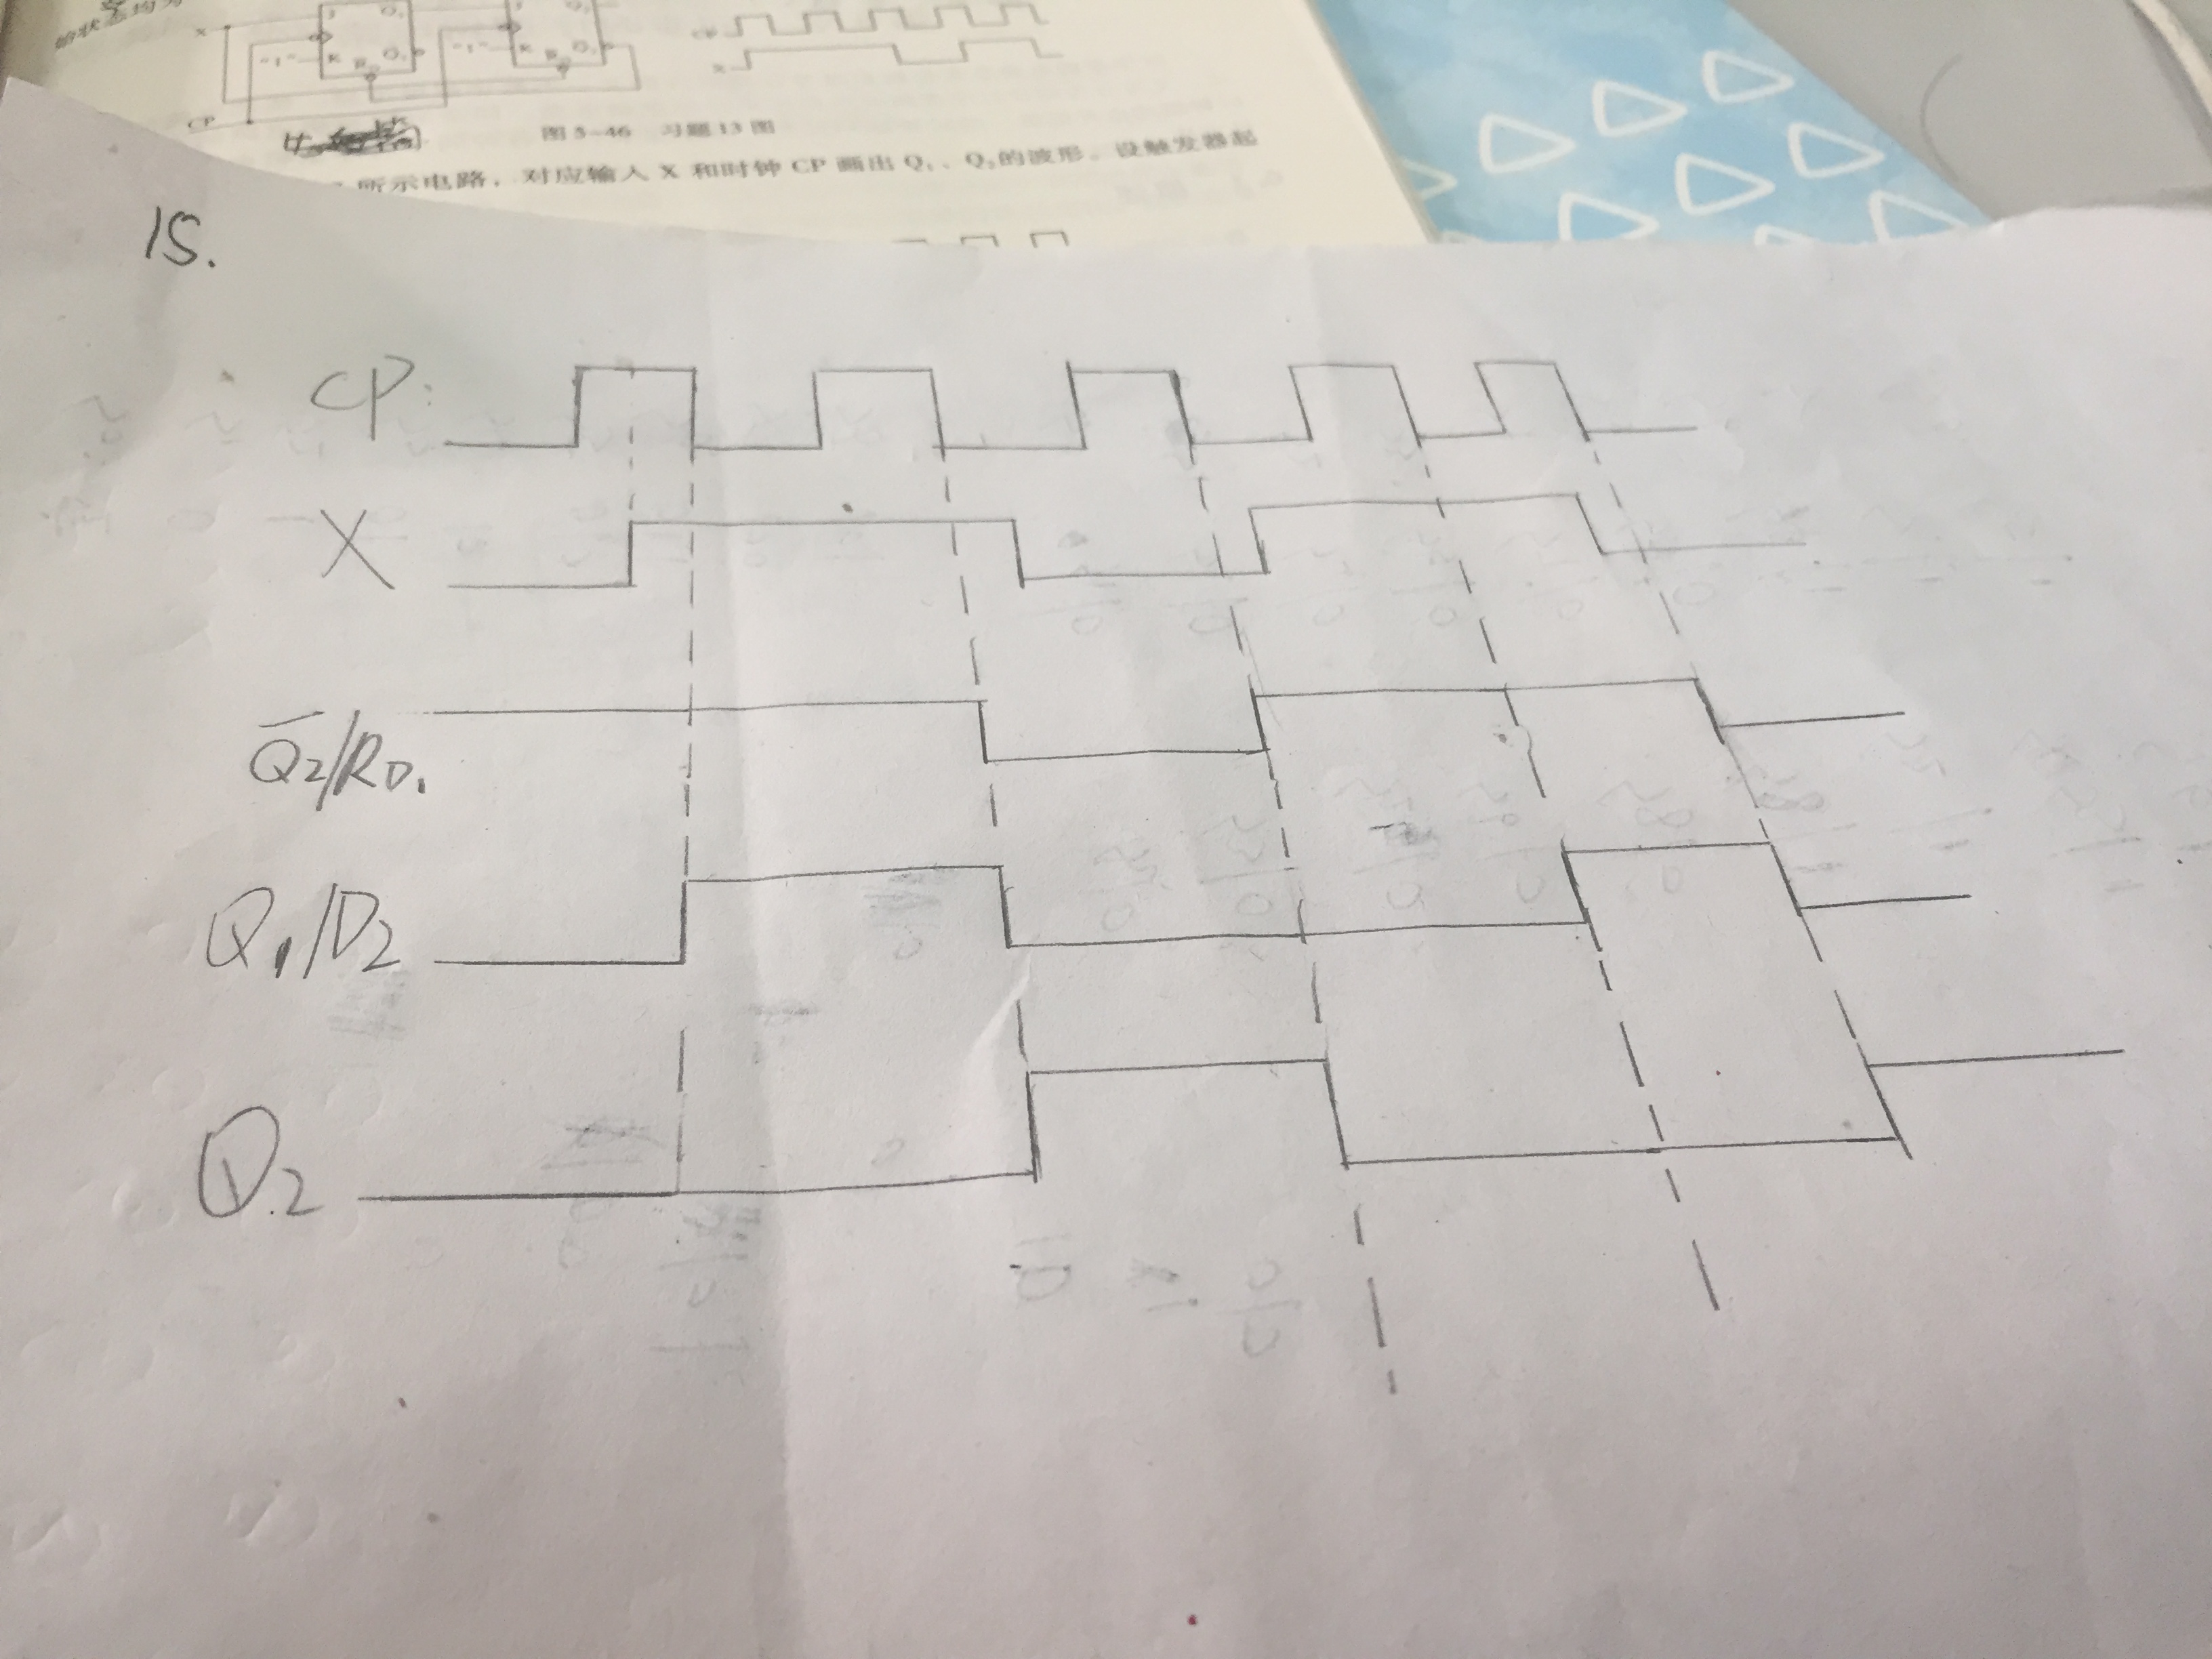 始状态均为
X
CP
"1"
K
"1"
K
CP
X
图 5-46 习题 13 图
所示电路，对应输入 X 和时钟 CP 画出 Q₁、Q₂的波形。设触发器起
15.
CP:
X
Q̅2/RD1
Q1/D2
Q2